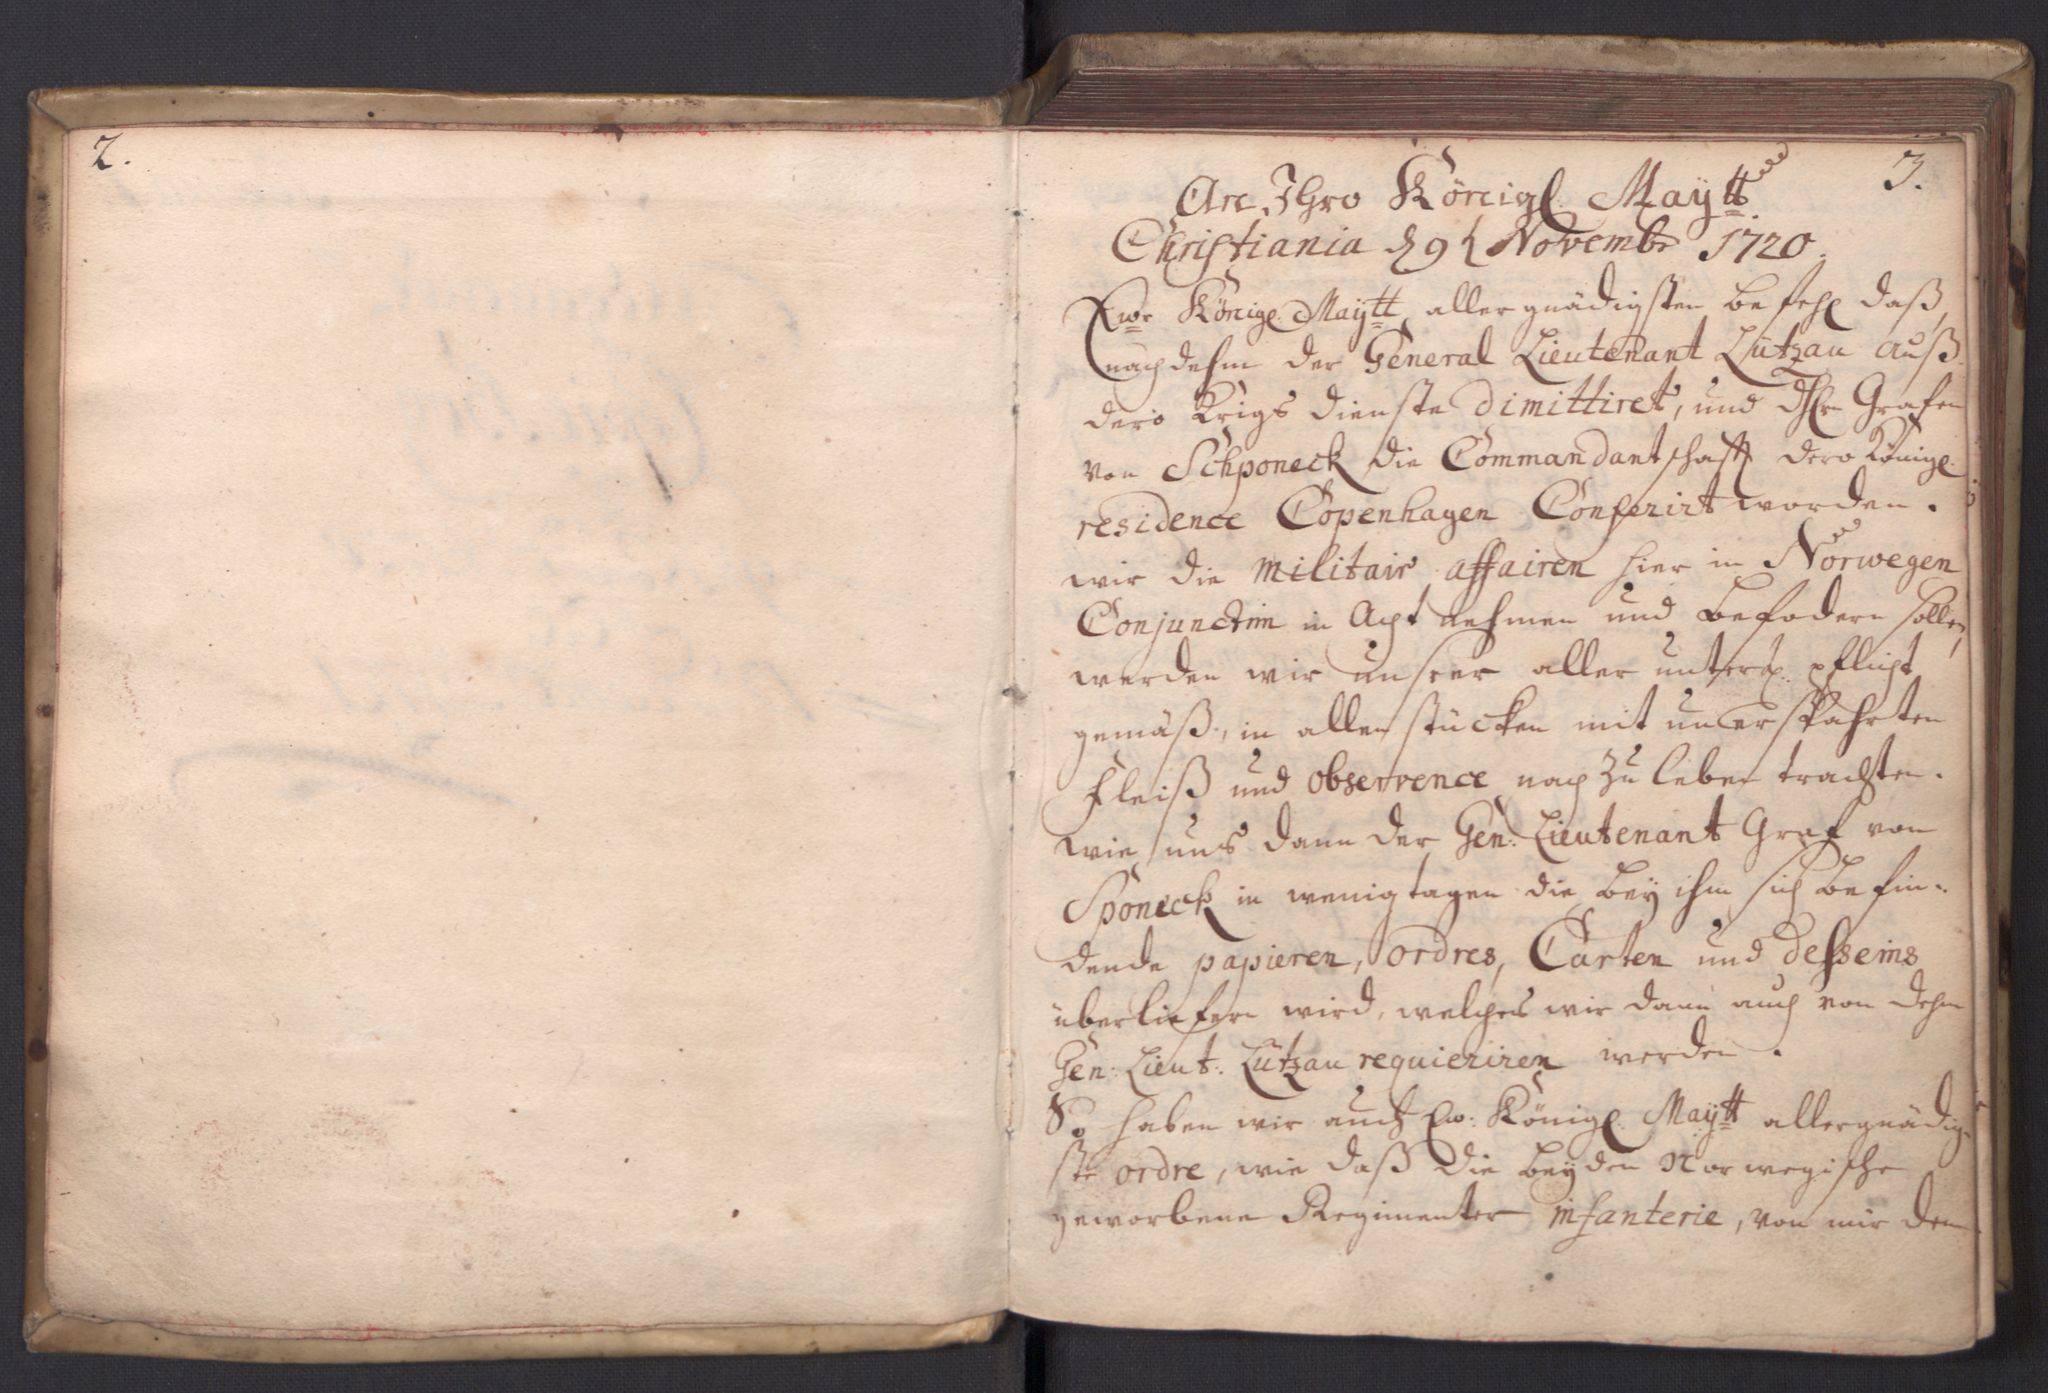 2.
3.
An Ihro Königl. Maytt.
Christiania d 9t Novembr 1720.
Ewr Königl. Maytt allergnädigsten befehl daß,
nachdehm der General Lieutenant Lützau auß
dero Krigs dienste dimittiret, und Grafen
von Schponeck die Commandantschafft dero Königl.
residence Copenhagen Conferirt worden.
wir die militair affairen hier in Norwegen
Conjunctim in Acht nehmen und befodern sollen,
werden wir unserer aller untert. pflicht
gemäß, in allen stücken mit unerspahrten
Fleiß und observence nach zu leben trachten.
wie uns dann der Gen: Lieutenant Graf von
Sponeck in wenig tagen die bey ihm sich befin-
dende papieren, ordres, Carten und desseins
überliefern wird, welches wir dann auch von dehm
Gen: Lieut: Lützau requieriren werden.
So haben wir auch Ew: Königl. Maytt allergnädig-
ste ordre, wie daß die beyden Norwegische
geworbene Regimenter infanterie, von mir dem